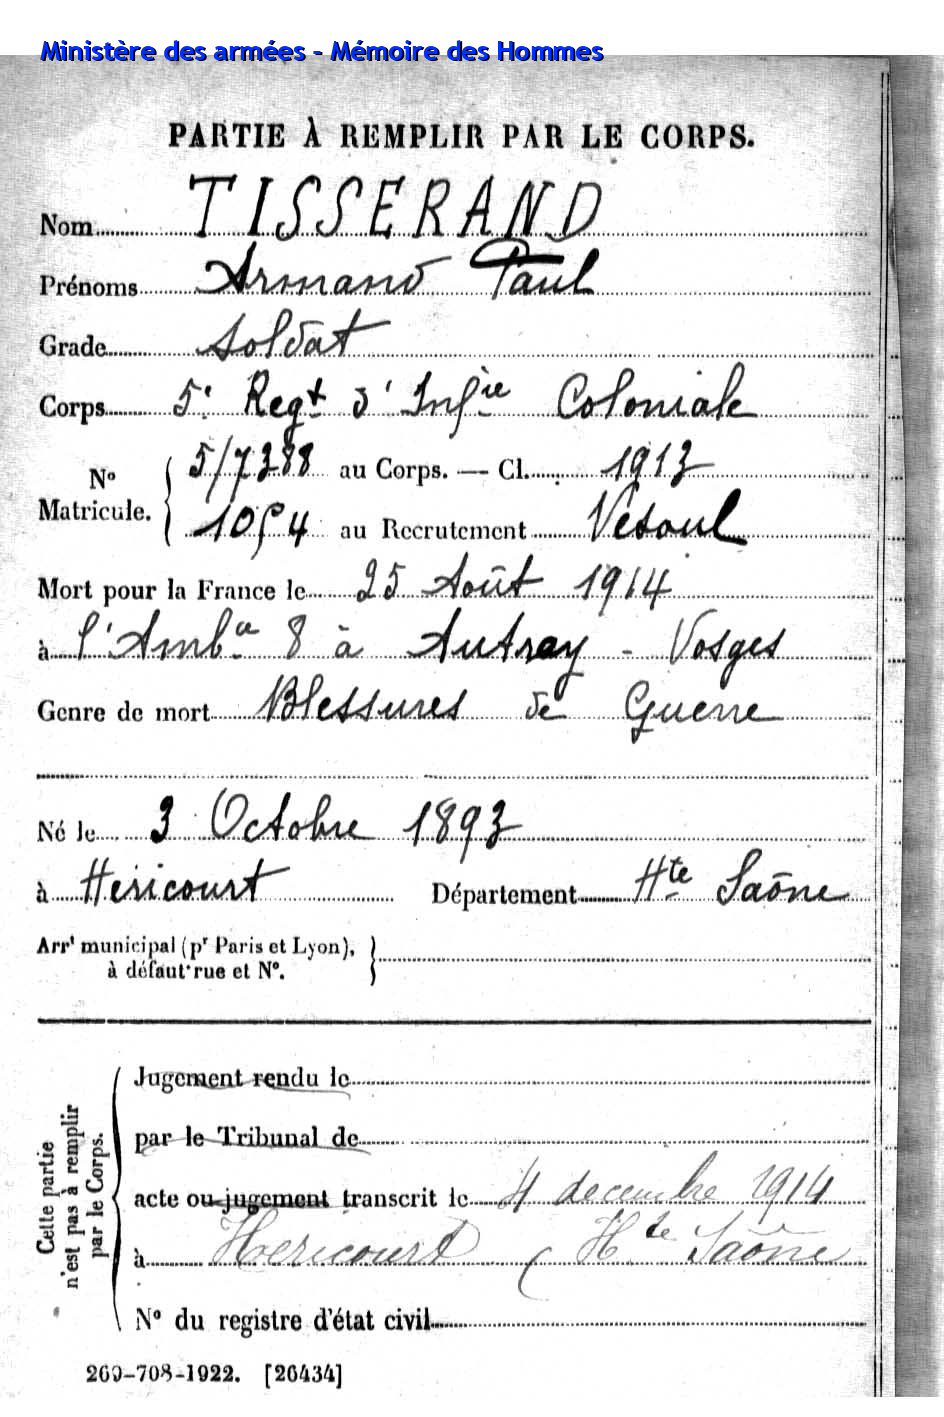 Ministère des armées - Mémoire des Hommes
PARTIE À REMPLIR PAR LE CORPS.
Nom TISSERAND
Prénoms Armand Paul
Grade Soldat
Corps 5e Regt d'Infie Coloniale
No Matricule. { 5/7388 au Corps. — Cl. 1913
1054 au Recrutement Vesoul
Mort pour la France le 25 Août 1914
à l'Ambce 8 à Autrey - Vosges
Genre de mort Blessures de Guerre
Né le 3 Octobre 1893
à Héricourt Département Hte Saône
Arrt municipal (pr Paris et Lyon), à défaut rue et No. }
Cette partie n'est pas à remplir par le Corps. {
Jugement rendu le
par le Tribunal de
acte ou jugement transcrit le 4 decembre 1914
à Hericourt (Hte Saône
No du registre d'état civil
260-708-1922. [26434]